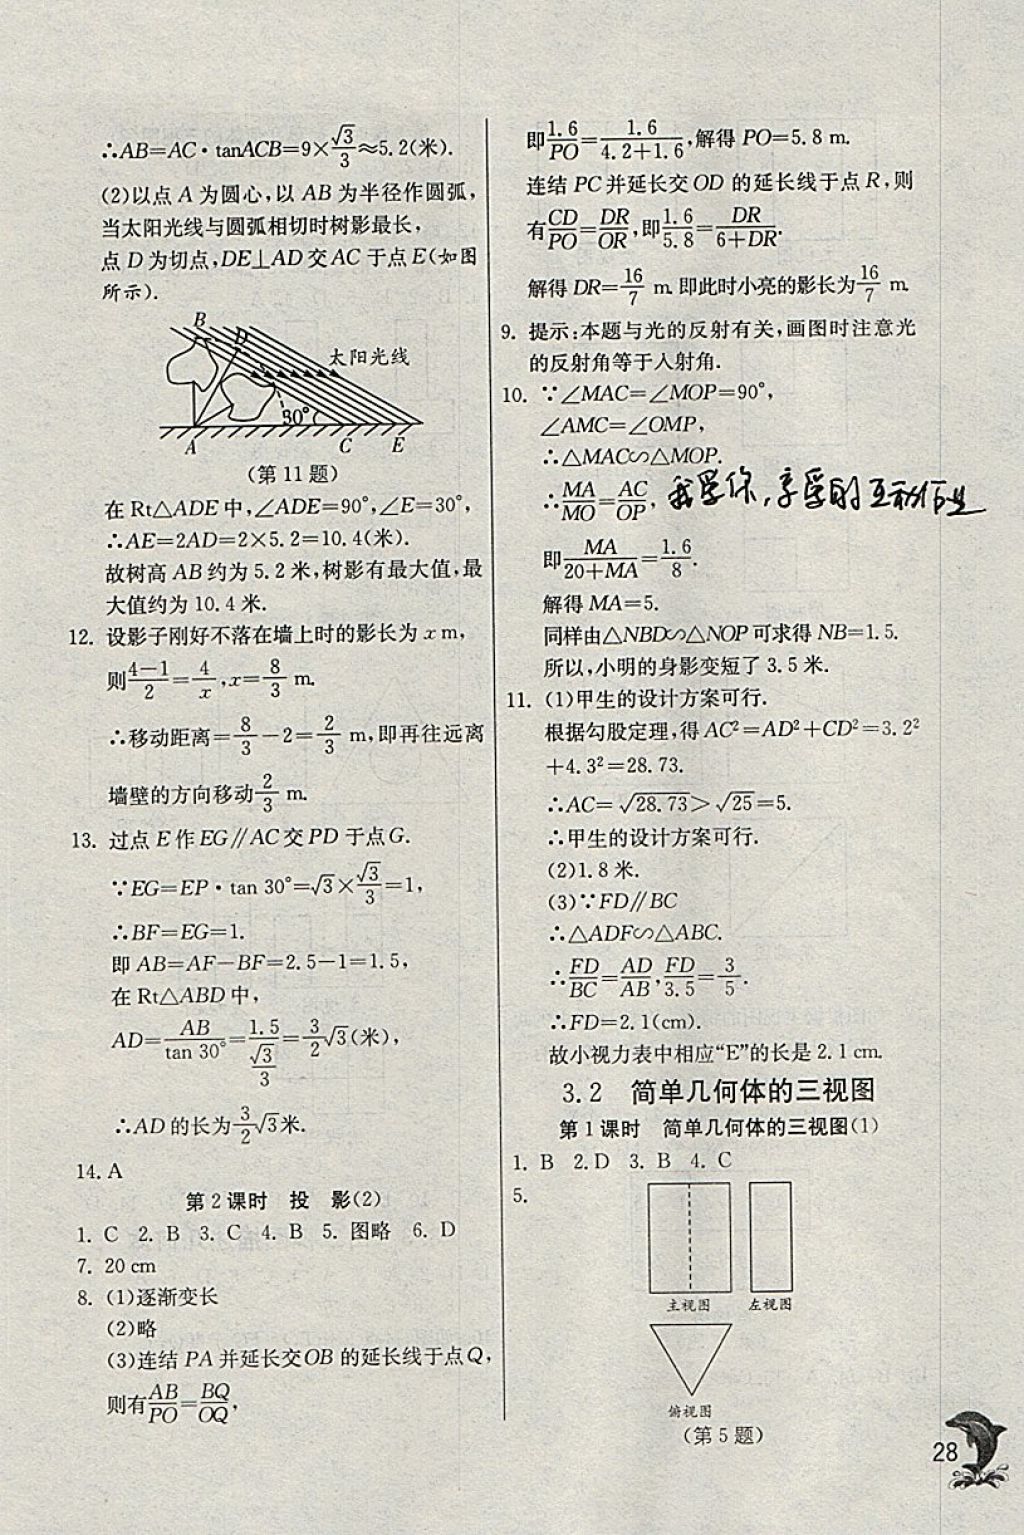 ∴AB=AC·tanACB=9×√3/3≈5.2(米).
(2)以点 A 为圆心,以 AB 为半径作圆弧,
当太阳光线与圆弧相切时树影最长,
点 D 为切点,DE⊥AD 交 AC 于点 E(如图
所示).
B
D
太阳光线
30°
A C E
(第 11 题)
在 Rt△ADE 中,∠ADE=90°,∠E=30°,
∴AE=2AD=2×5.2=10.4(米).
故树高 AB 约为 5.2 米,树影有最大值,最
大值约为 10.4 米.
12. 设影子刚好不落在墙上时的影长为 x m,
则(4−1)/2=4/x,x=8/3 m.
∴移动距离=8/3−2=2/3 m,即再往远离
墙壁的方向移动2/3 m.
13. 过点 E 作 EG∥AC 交 PD 于点 G.
∵EG=EP·tan 30°=√3×√3/3=1,
∴BF=EG=1.
即 AB=AF−BF=2.5−1=1.5,
在 Rt△ABD 中,
AD=AB/tan 30°=1.5/(√3/3)=3/2√3(米),
∴AD 的长为3/2√3米.
14. A
第 2 课时 投 影(2)
1. C 2. B 3. C 4. B 5. 图略 6. D
7. 20 cm
8. (1)逐渐变长
(2)略
(3)连结 PA 并延长交OB 的延长线于点 Q,
则有AB/PO=BQ/OQ,
即1.6/PO=1.6/(4.2+1.6),解得 PO=5.8 m.
连结 PC 并延长交 OD 的延长线于点 R,则
有CD/PO=DR/OR,即1.6/5.8=DR/(6+DR).
解得 DR=16/7 m.即此时小亮的影长为16/7 m.
9. 提示:本题与光的反射有关,画图时注意光
的反射角等于入射角.
10. ∵∠MAC=∠MOP=90°,
∠AMC=∠OMP,
∴△MAC∽△MOP.
∴MA/MO=AC/OP,
即MA/(20+MA)=1.6/8.
解得 MA=5.
同样由△NBD∽△NOP 可求得 NB=1.5.
所以,小明的身影变短了 3.5 米.
11. (1)甲生的设计方案可行.
根据勾股定理,得 AC²=AD²+CD²=3.2²
+4.3²=28.73.
∴AC=√28.73>√25=5.
∴甲生的设计方案可行.
(2)1.8 米.
(3)∵FD∥BC
∴△ADF∽△ABC.
∴FD/BC=AD/AB,FD/3.5=3/5.
∴FD=2.1(cm).
故小视力表中相应“E”的长是 2.1 cm.
3.2 简单几何体的三视图
第 1 课时 简单几何体的三视图(1)
1. B 2. D 3. B 4. C
5.
主视图 左视图
俯视图
(第 5 题)
28